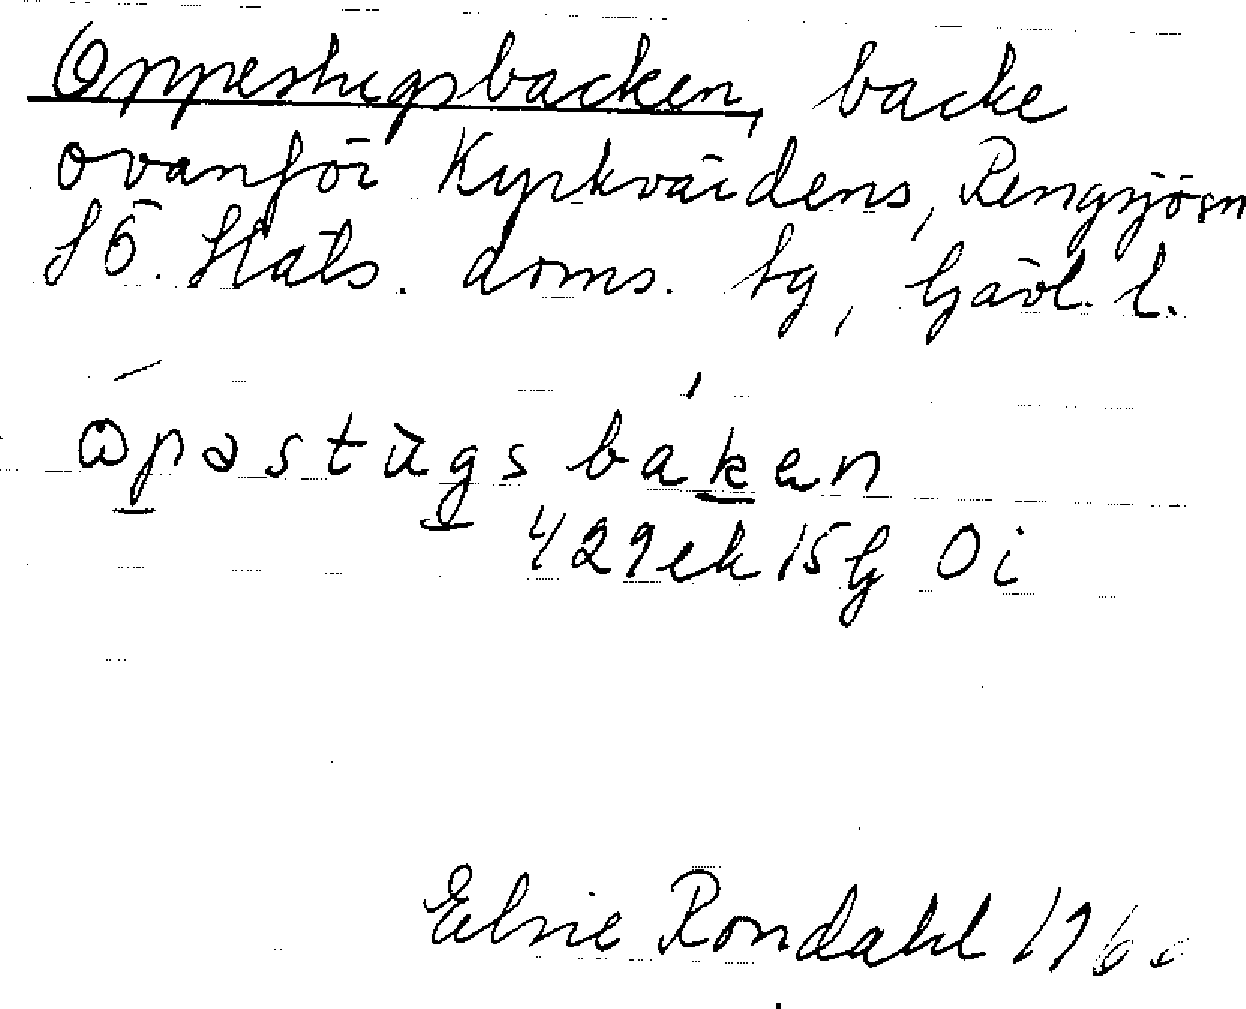 Oppestugsbacken, backe
ovanför Kyrkvärdens, Rengsjösn
SÖ. Häls. doms. tg, Gävl. l.
òpəstu̅gs bakən
429ek15G Oi
Elsie Rondahl 1960